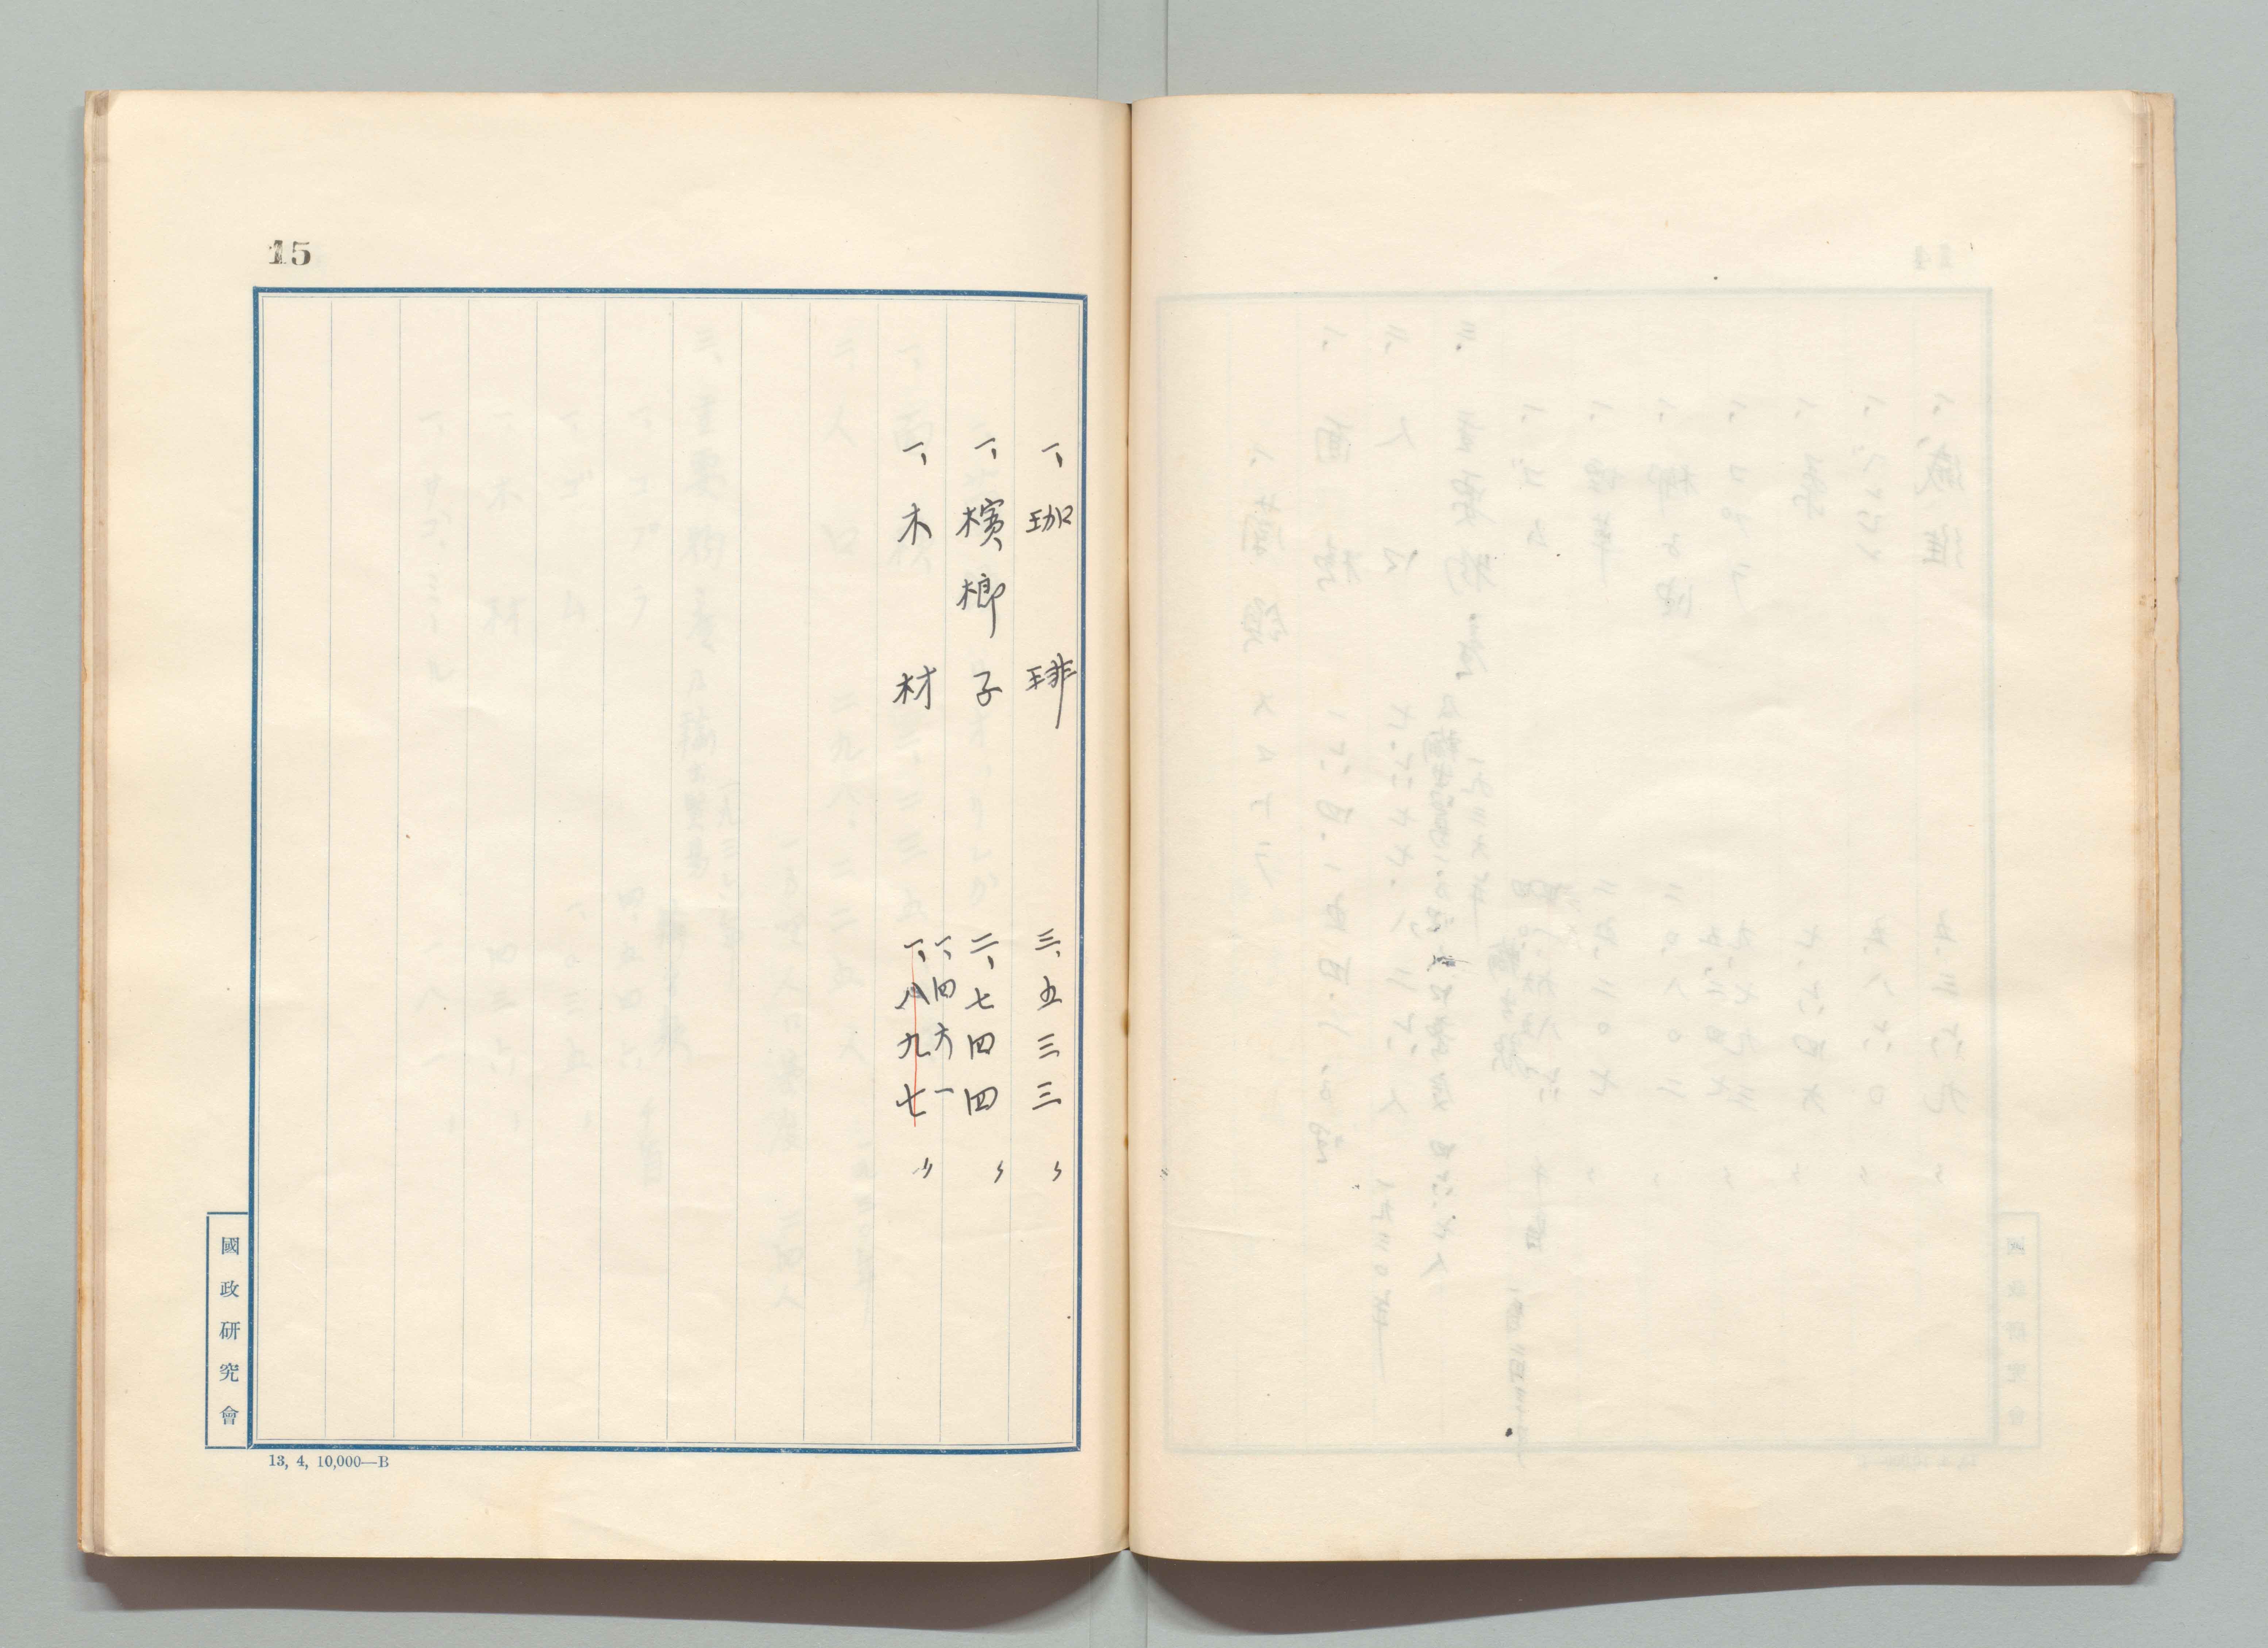 15
一、珈琲 三、五三三〃
一、檳榔子 二、七四四〃
一、四六一
一、木材 一、八九七〃
國政研究會
13, 4, 10,000—B